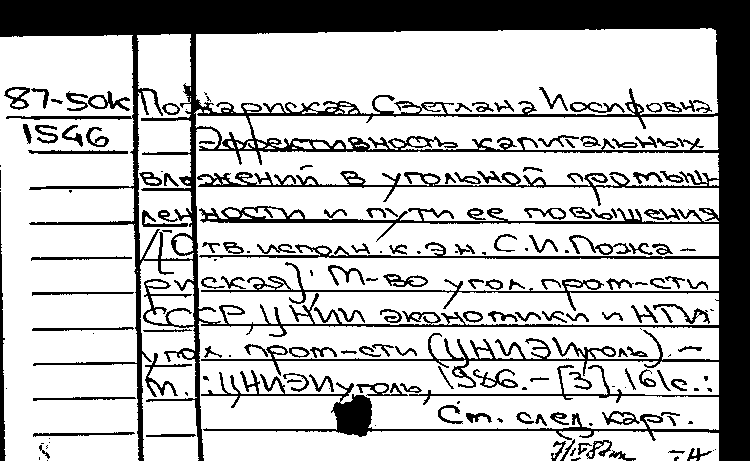 87-50к Пожариская, Светлана Иосифовна
1546 Эффективность капитальных
вложений в угольной промыш-
ленности и пути ее повышения
/[Отв. исполн. к. э. н. С. И. Пожа-
риская]; М-во угол. пром-сти
СССР, ЦНИИ экономики и НТИ
угол. пром-сти (ЦНИЭИуголь). –
М.: ЦНИЭИуголь, 1986. – [3], 161 с.:
См. след. карт.
8